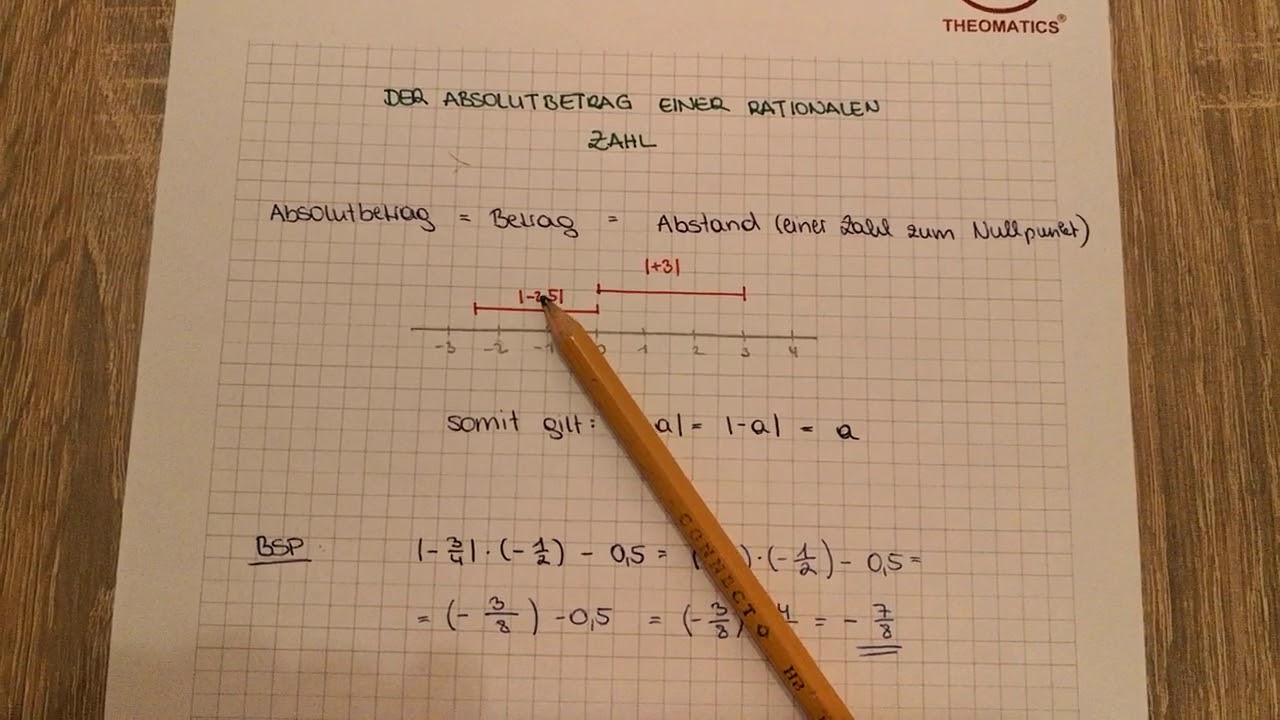 THEOMATICS®
DER ABSOLUTBETRAG EINER RATIONALEN
ZAHL
Absolutbetrag = Betrag = Abstand (einer Zahl zum Nullpunkt)
|+3|
|-2,5|
-3 -2 -1 0 1 2 3 4
somit gilt: a| = |-a| = a
BSP: |-3/4| · (-1/2) - 0,5 = ( ) · (-1/2) - 0,5 =
= (-3/8) - 0,5 = (-3/8) 4 = - 7/8
CONNECT O HB